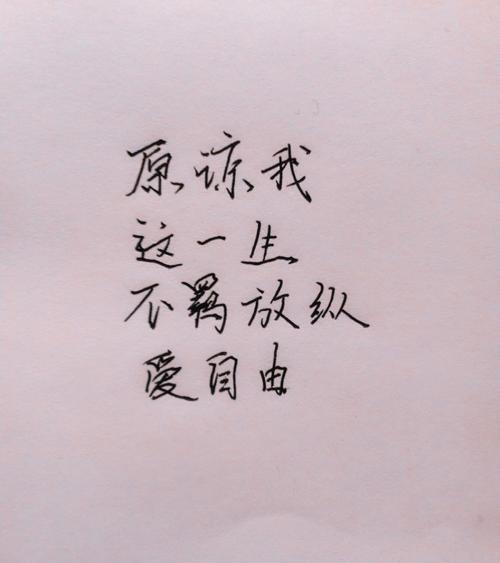 原谅我
这一生
不羁放纵
爱自由